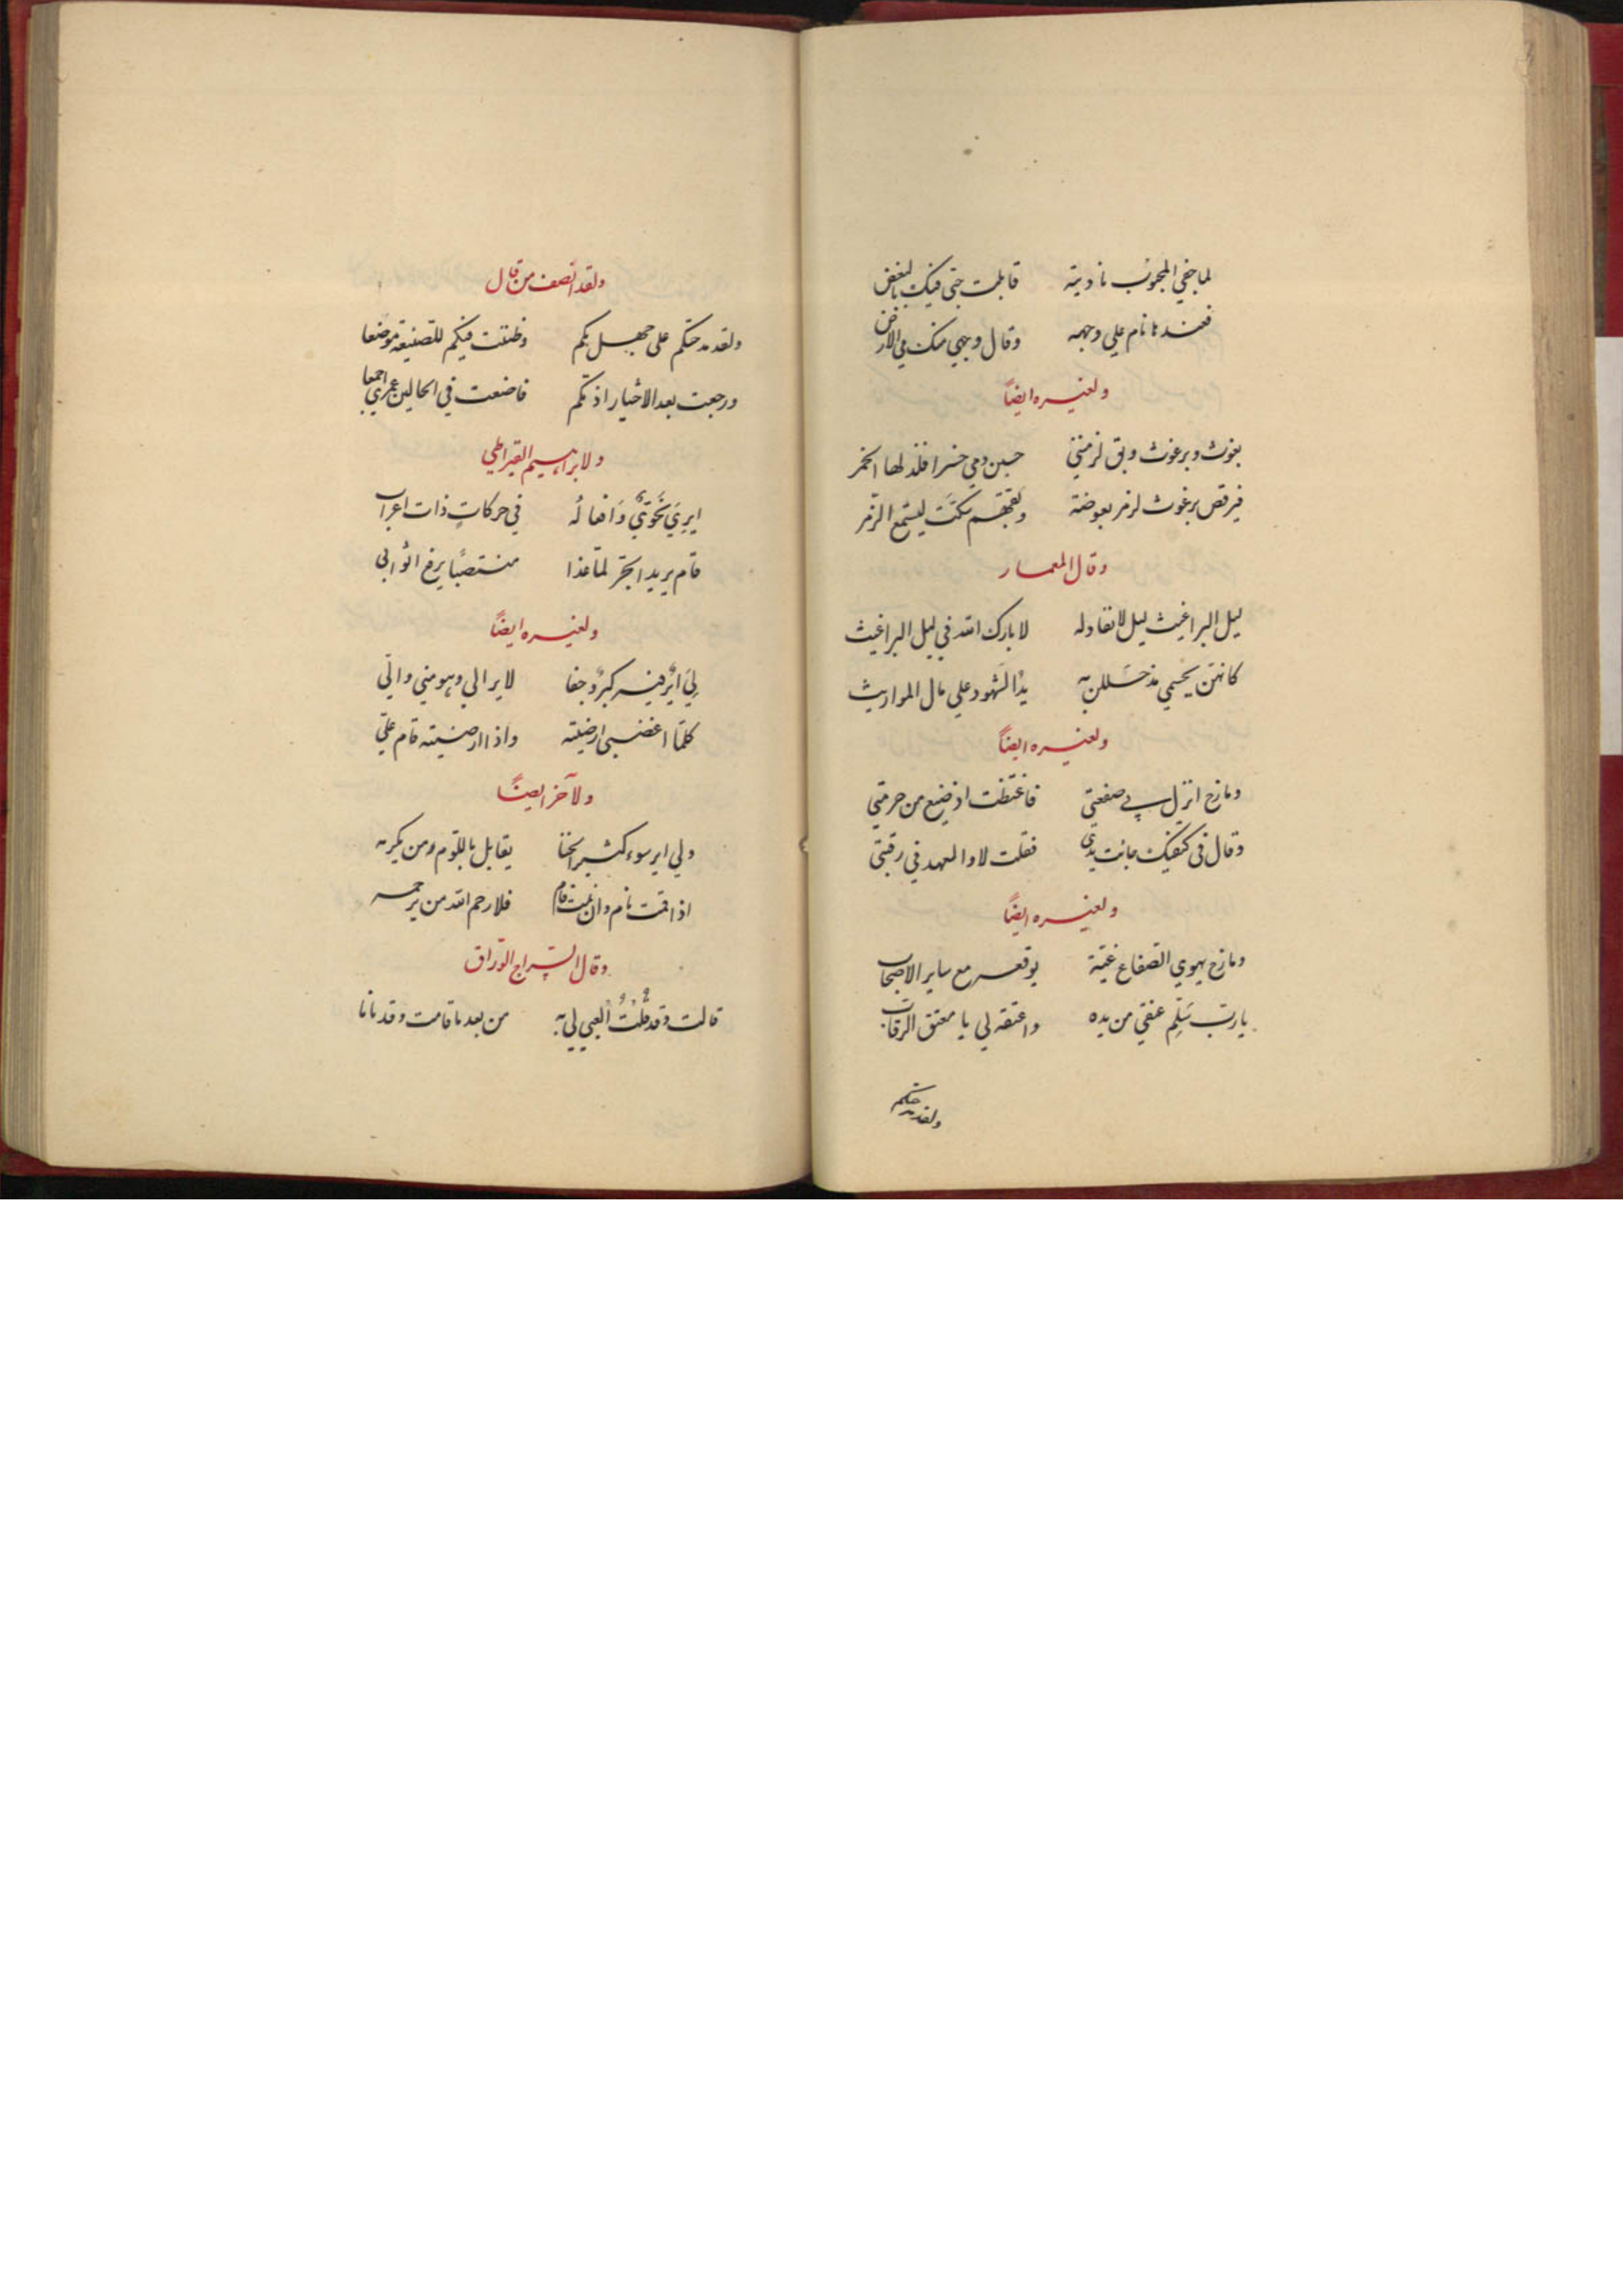 لما جفي المحبوب ناديته قابلت حبي فيك بالبغض
فعندها نام علي وجهه وقال وجهي منك في الارض
ولغيره ايضاً
بعوث وبرغوث وبق لزمنني حسبن دمي خمرا فلذ لها الخمر
فيرقص برغوث لزمر بعوضة وبقهم سكت ليسمع الزمر
وقال المعمار
ليل البراغيث ليل لا نفاد له لا بارك الله في ليل البراغيث
كانهن بجسمي مذ حللن به يد الشهود علي مال المواريث
ولغيره ايضاً
ومازح انزل بي صفعتي فاغتظت اذ ضيع من حرمتي
وقال في كتفيك جائت يدي فقلت لا والعهد في رقبتي
ولغيره ايضاً
ومازح يهوي الصفاع غية يوقعه مع ساير الاصحاب
يا رب سَلِّم عنقي من يده واعتقه لي يا معتق الرقاب
ولقد مدحتكم
ولقد انصف من قال
ولقد مدحتكم على جهل بكم وظننت فيكم للصنيعة موضعا
ورجعت بعد الاختبار اذمكم فاضعت في الحالين عمري اجمعا
ولابراهيم القيراطي
ايري نحويٌّ وافعاله في حركاتٍ ذات اعراب
قام يريد الجرّ لما غذا منتصبًا يرفع اثوابي
ولغيره ايضاً
لي ايرٌ فيه كبرٌ وجفا لا يرا لي وهو مني والّي
كلما اغضبني ارضيته واذا ارضيته قام عليّ
ولآخر ايضاً
ولي اير سوء كثير الخنا يقابل باللوم من يكرمه
اذا قمت نام وان نمت قام فلا رحم الله من يرحمه
وقال السراج الوراق
قالت وقد قلتُ العبي لي به من بعد ما قامت وقد نانا